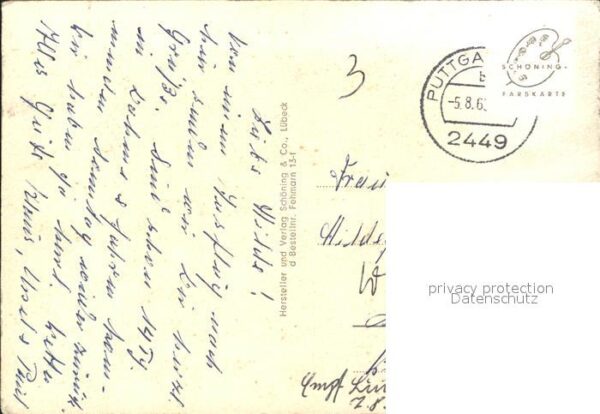 Liebe Hilde!
Von einem Ausflug nach
hier senden wir Dir herzl.
Grüße. Sind schon 14 Tg.
in Dahme & fahren kom-
menden Sonntag wieder zurück
Wir haben ja herrl. Wetter
Alles Gute Klaus, Ursel &
Hersteller und Verlag Schöning & Co., Lübeck
d Bestellnr. Fehmarn 15-f
3
PUTTGA
b
-5.8.6
2449
SCHÖNING-
FARBKARTE
Hilde
privacy protection
Datenschutz
7.8.